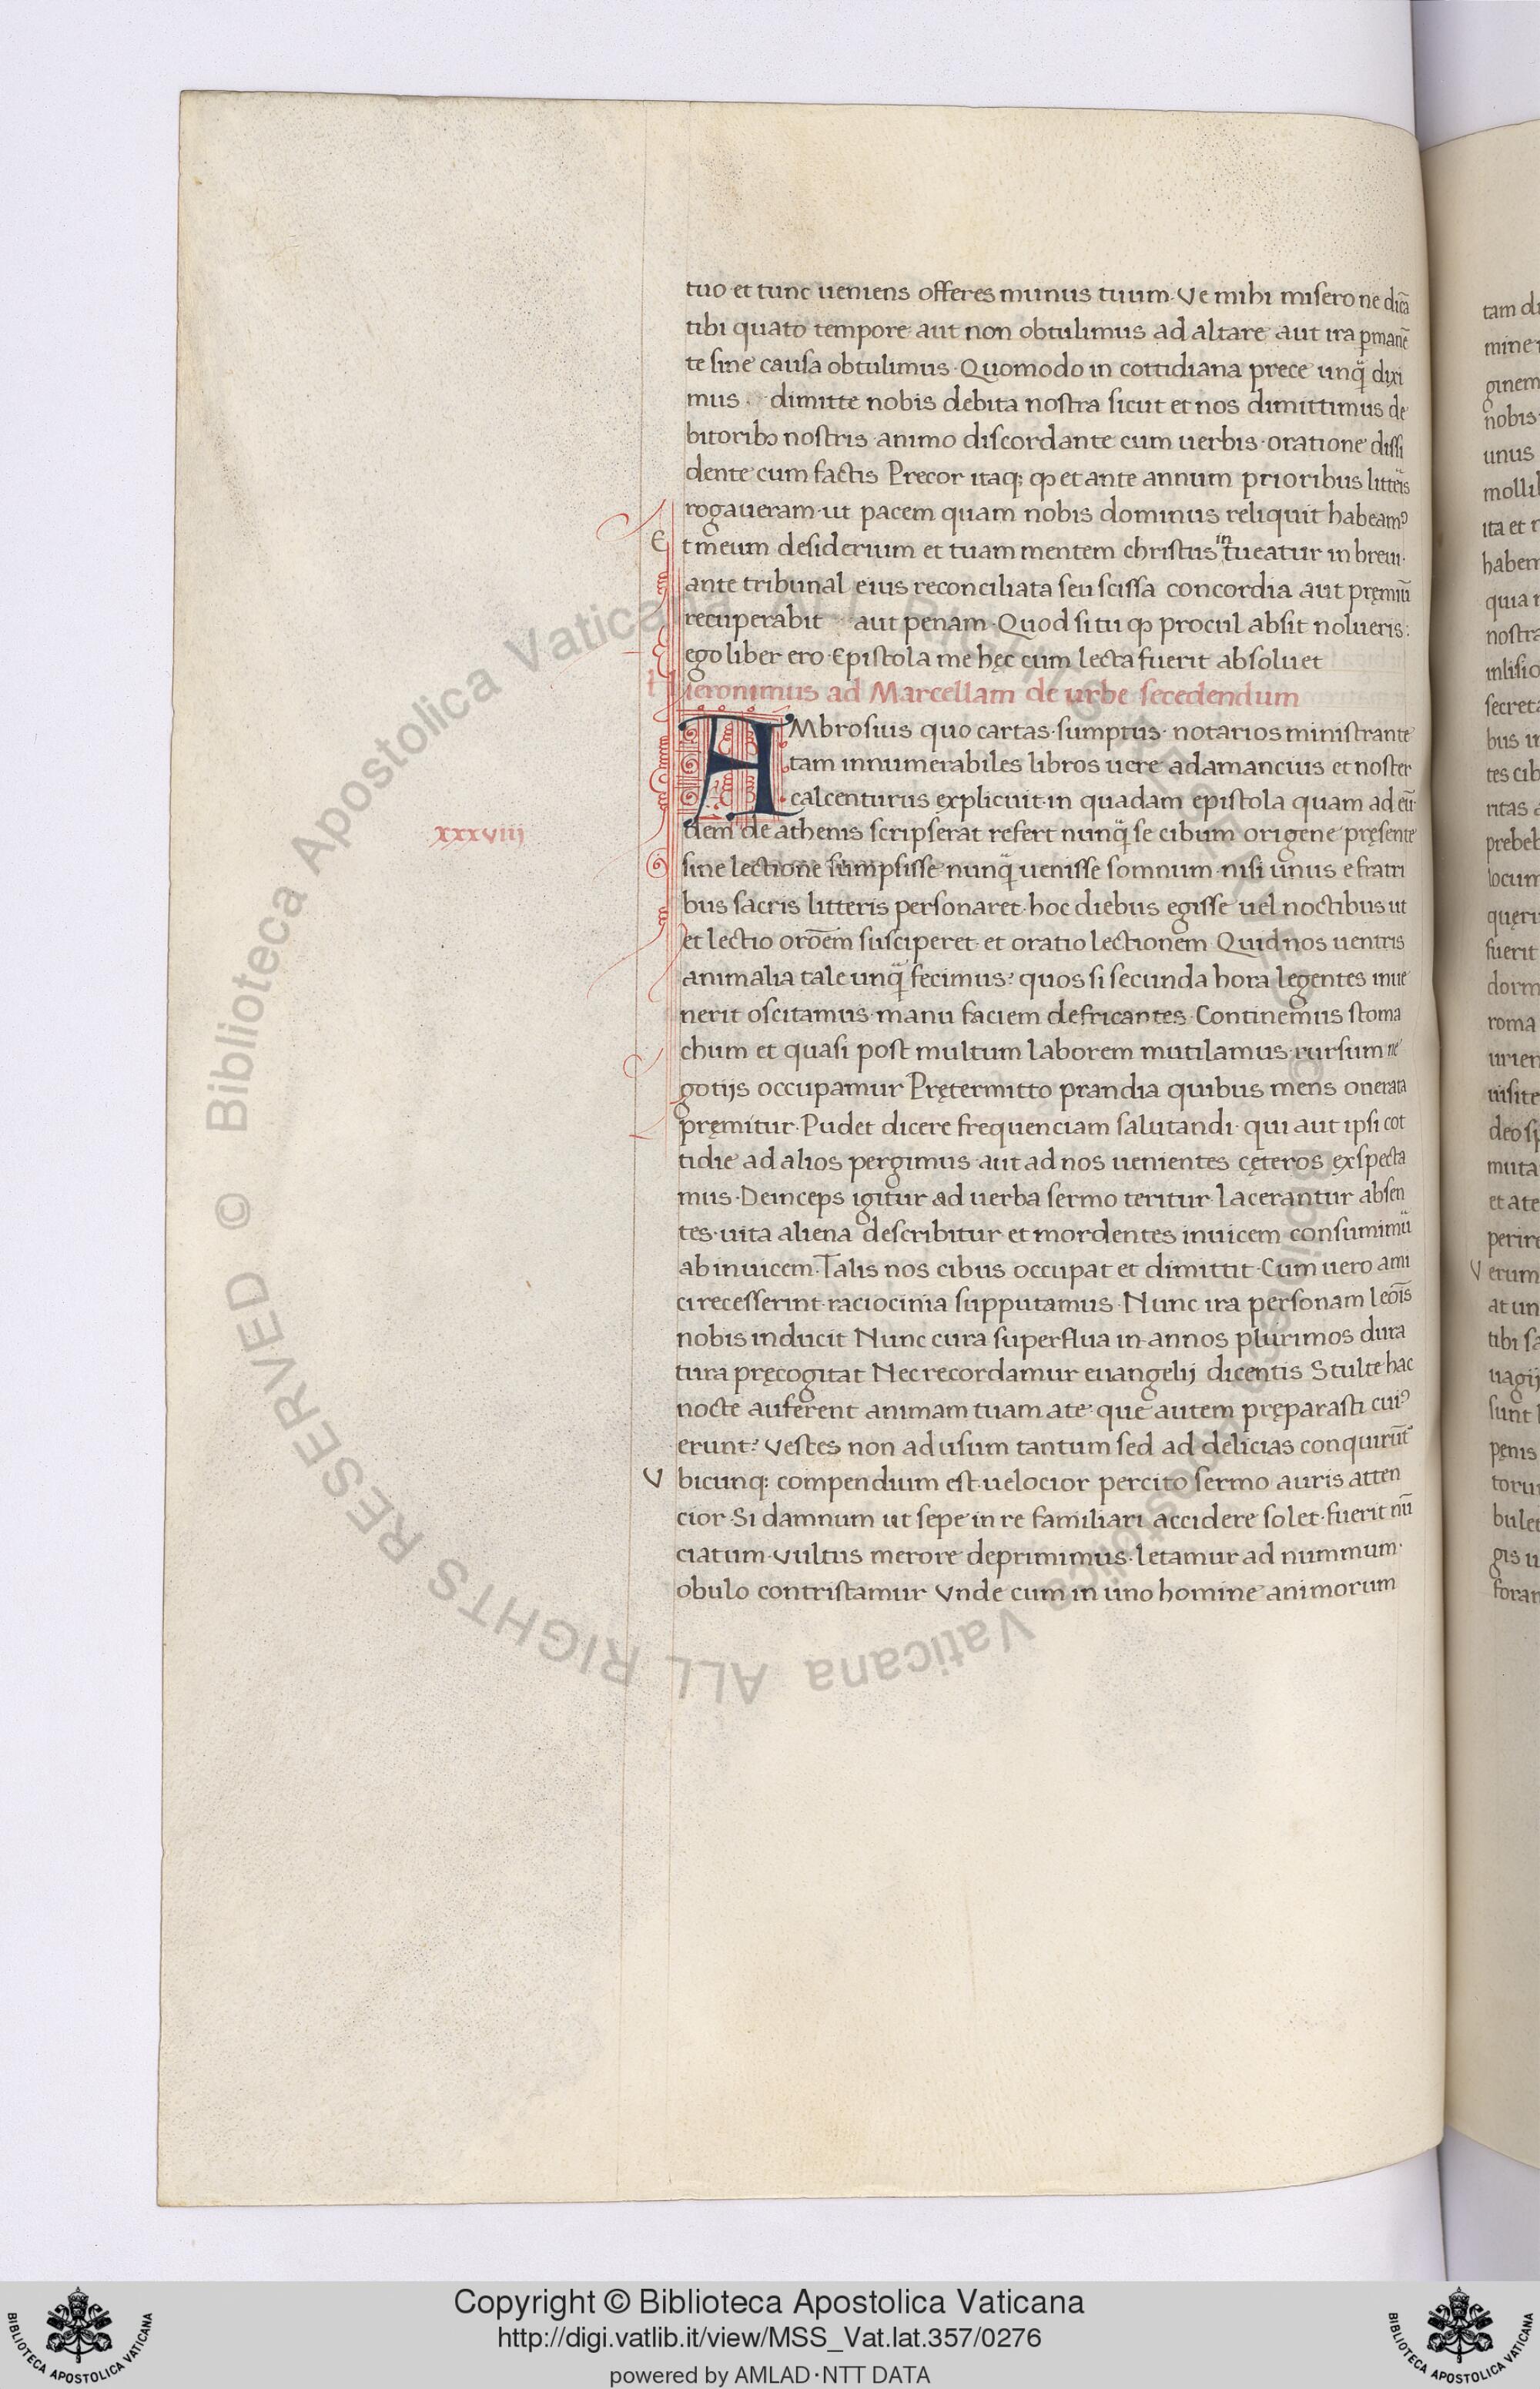 tuo et tunc ueniens offeres munus tuum. Ve mihi misero ne dicā
tibi quato tempore aut non obtulimus ad altare aut ira ꝑmanē
te sine causa obtulimus. Quomodo in cottidiana prece unq̃ dixi
mus. dimitte nobis debita nostra sicut et nos dimittimus de
bitoribꝫ nostris animo discordante cum uerbis. oratione dissi
dente cum factis Precor itaq; ꝙ et ante annum prioribus litteris
rogaueram. ut pacem quam nobis dominus reliquit habeamꝰ
Et meum desiderium et tuam mentem christus intueatur in breui.
ante tribunal eius reconciliata seu scissa concordia aut pręmiū
recuperabit aut penam. Quod si tu ꝙ procul absit nolueris:
ego liber ero. Epistola me hęc cum lecta fuerit absoluet
Hieronimus ad Marcellam de urbe secedendum
AMbrosius quo cartas. sumptus. notarios ministrante
tam innumerabiles libros uere adamancius et noster
calcenturus explicuit. in quadam epistola quam ad eū
xxxviij
dem de athenis scripserat refert nunq̃ se cibum origene pręsente
sine lectione sumpsisse nunq̃ uenisse somnum. nisi unus e fratri
bus sacris litteris personaret. hoc diebus egisse uel noctibus ut
et lectio orōem susciperet. et oratio lectionem Quid nos uentris
animalia tale unq̃ fecimus? quos si secunda hora legentes inue
nerit oscitamus. manu faciem defricantes. Continemus stoma
chum et quasi post multum laborem mutilamus. rursum ne
gotijs occupamur Prętermitto prandia quibus mens onerata
pręmitur. Pudet dicere frequenciam salutandi. qui aut ipsi cot
tidie ad alios pergimus aut ad nos uenientes cęteros exspecta
mus. Deinceps igitur ad uerba sermo teritur. lacerantur absen
tes. uita aliena describitur et mordentes inuicem consumimur
ab inuicem. Talis nos cibus occupat et dimittit. Cum uero ami
ci recesserint. raciocinia supputamus. Nunc ira personam leōis
nobis inducit Nunc cura superflua in annos plurimos dura
tura pręcogitat Nec recordamur euangelij dicentis Stulte hac
nocte auferent animam tuam a te. que autem pręparasti cuiꝰ
erunt? Vestes non ad usum tantum sed ad delicias conquirūt
Vbicunq; compendium est. uelocior percito sermo auris atten
cior. Si damnum ut sepe in re familiari accidere solet. fuerit nū
ciatum. vultus merore deprimimus. letamur ad nummum.
obulo contristamur Vnde cum in uno homine animorum
Biblioteca Apostolica Vaticana ALL RIGHTS RESERVED ©
Copyright © Biblioteca Apostolica Vaticana
http://digi.vatlib.it/view/MSS_Vat.lat.357/0276
powered by AMLAD·NTT DATA
BIBLIOTECA APOSTOLICA VATICANA
BIBLIOTECA APOSTOLICA VATICANA